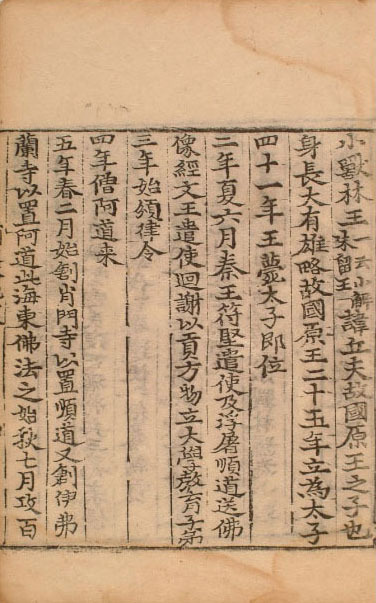 小獸林王一云小解朱留王諱丘夫故國原王之子也
身長大有雄略故國原王二十五年立為太子
四十一年王薨太子即位
二年夏六月秦王符堅遣使及浮屠順道送佛
像經文王遣使迴謝以貢方物立大學教育子弟
三年始頒律令
四年僧阿道来
五年春二月始創肖門寺以置順道又創伊弗
蘭寺以置阿道此海東佛法之始秋七月攻百